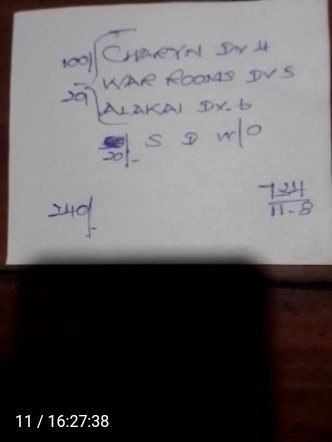 100/ CHARYN Dr 4
20/- WAR ROOMS Dr 5
ALAKAI Dr. 6
20/- S D W/O
240/-
724
11-8
11 / 16:27:38